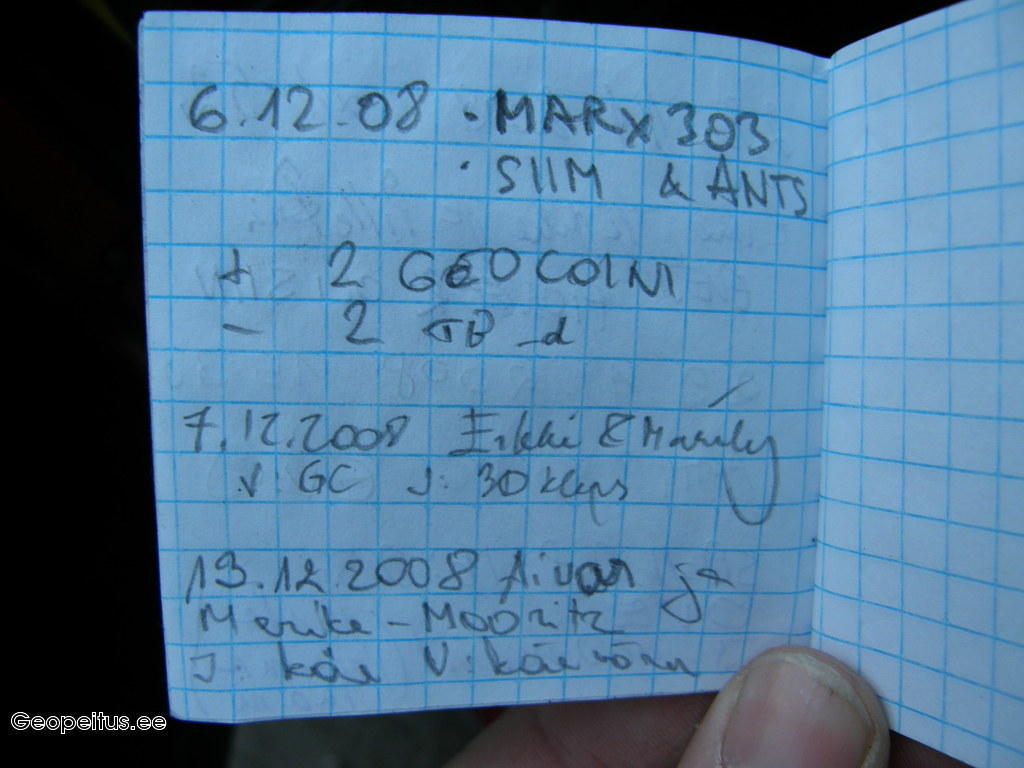 6.12.08 · MARX303
· SIIM & ANTS
+ 2 GEOCOINI
- 2 TB_d
7.12.2008 Erkki & Marily
V: GC J: 30 kleps
13.12.2008 Aivar ja
Merike-Mooritz
J: käe V: käe
Geopeitus.ee